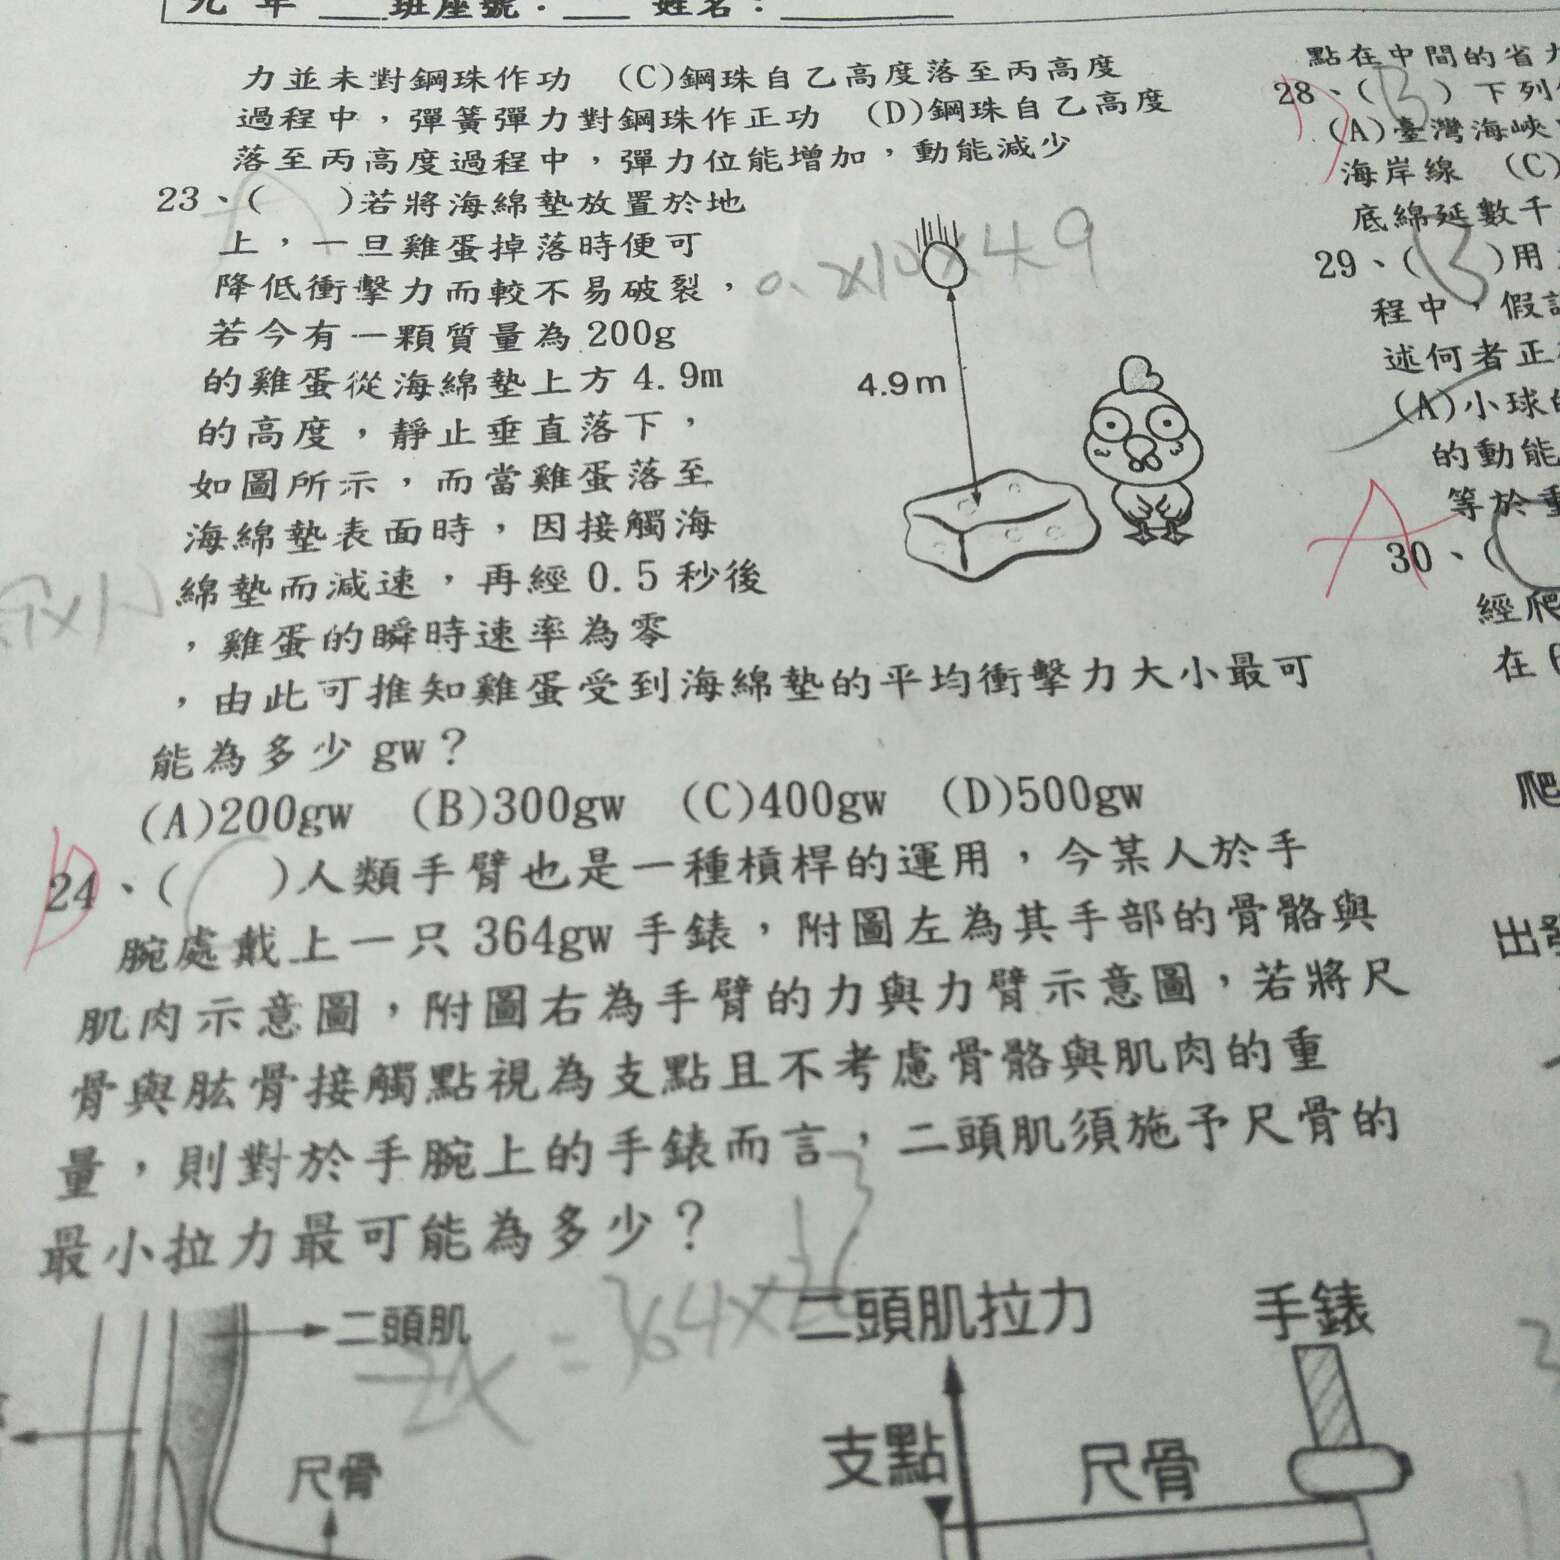 年 ___班座號：___ 姓名：________
力並未對鋼珠作功 (C)鋼珠自乙高度落至丙高度
過程中，彈簧彈力對鋼珠作正功 (D)鋼珠自乙高度
落至丙高度過程中，彈力位能增加，動能減少
23、( )若將海綿墊放置於地
上，一旦雞蛋掉落時便可
降低衝擊力而較不易破裂，
若今有一顆質量為200g
的雞蛋從海綿墊上方4.9m
的高度，靜止垂直落下，
如圖所示，而當雞蛋落至
海綿墊表面時，因接觸海
綿墊而減速，再經0.5秒後
，雞蛋的瞬時速率為零
，由此可推知雞蛋受到海綿墊的平均衝擊力大小最可
能為多少gw？
(A)200gw (B)300gw (C)400gw (D)500gw
4.9m
D
24、( )人類手臂也是一種槓桿的運用，今某人於手
腕處戴上一只364gw手錶，附圖左為其手部的骨骼與
肌肉示意圖，附圖右為手臂的力與力臂示意圖，若將尺
骨與肱骨接觸點視為支點且不考慮骨骼與肌肉的重
量，則對於手腕上的手錶而言，二頭肌須施予尺骨的
最小拉力最可能為多少？
二頭肌
尺骨
二頭肌拉力
手錶
支點
尺骨
點在中間的省
28、(B)下列
(A)臺灣海峽
海岸線 (C)
底綿延數千
29、(B)用
程中，假
述何者正
(A)小球
的動能
等於重
A
30、(
經爬
在
爬
出發